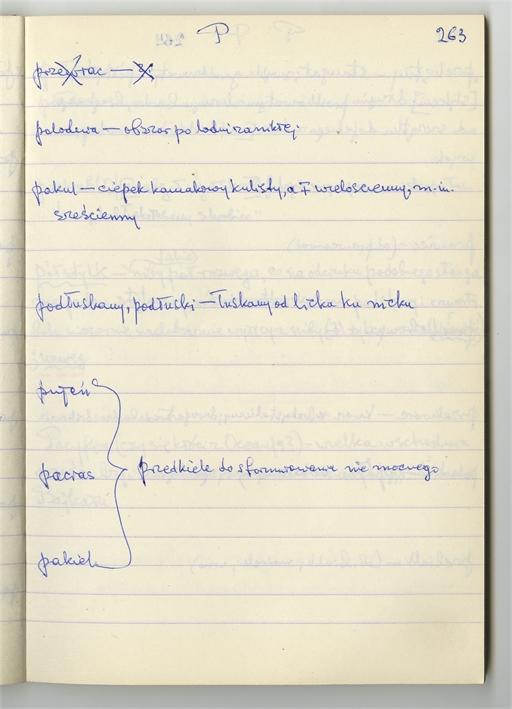 P
263
przeworac —
polodewa — obszar po lodni zamkłej
pakul — ciepek kamakowy kulisty, a I wielościenny, m.in.
sześcienny
podłuskany, podłuski — łuskany od licka ku nicku
pacias
przedkiele do sformowania nie mocnego
pakiel